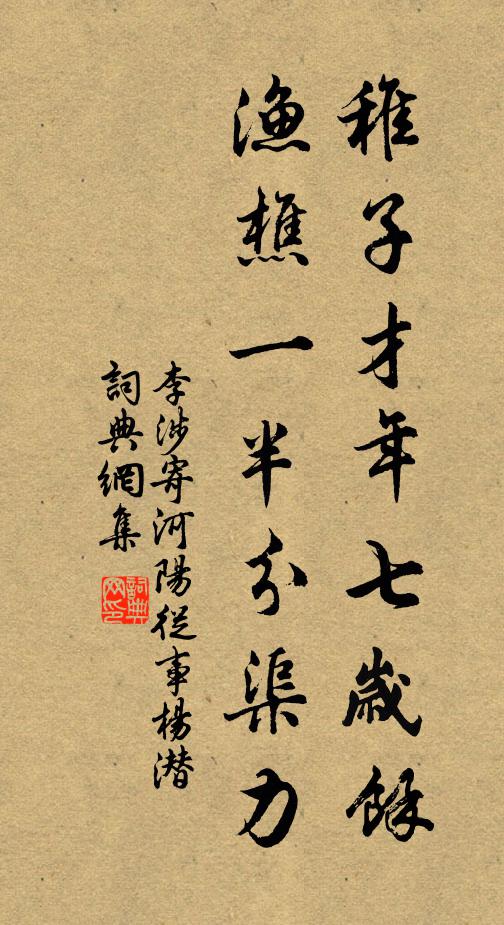 稚子才年七歲餘
漁樵一半分渠力
李涉寄河陽從事楊潛
詞典網集
詞典網印